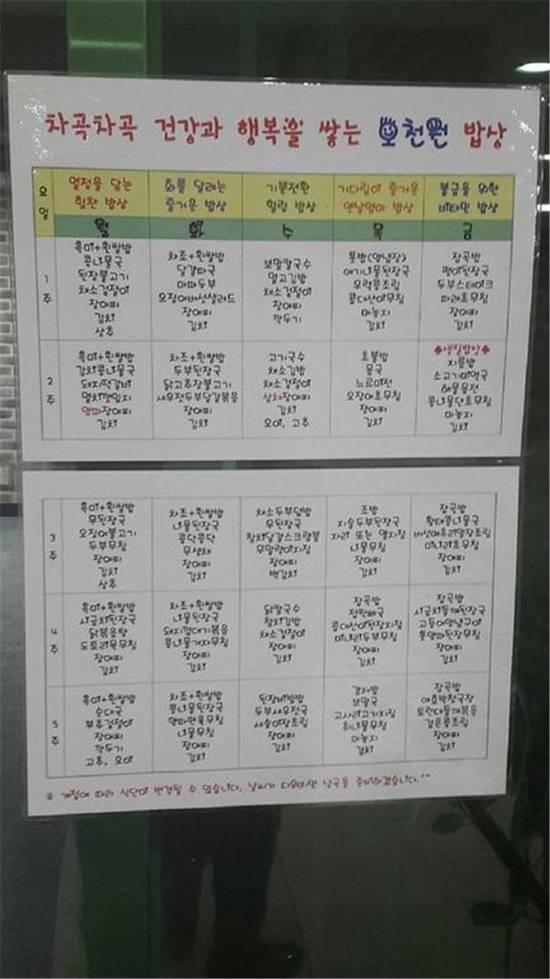 차곡차곡 건강과 행복을 쌓는 보천원 밥상
요일 열정을 담는 화를 달래는 기분전환 기다림이 즐거운 불금을 위한
힘찬 밥상 즐거운 밥상 힐링 밥상 옛날엄마 밥상 비타민 밥상
월 화 수 목 금
1주
흑미+흰쌀밥
콩나물국
된장불고기
채소겉절이
장아찌
김치
상추
차조+흰쌀밥
달걀파국
마파두부
오징어버섯샐러드
장아찌
김치
보말칼국수
멸고김밥
채소겉절이
장아찌
깍두기
톳밥(양념장)
애기나물된장국
우럭콩조림
콩대산이무침
마농지
김치
잡곡밥
팽이된장국
두부스테이크
파래초무침
장아찌
김치
2주
흑미+흰쌀밥
김치콩나물국
돼지떡갈비
멸치깻잎지
양파장아찌
김치
차조+흰쌀밥
두부된장국
닭고추장불고기
새우전두부달걀볶음
장아찌
김치
고기국수
채소김밥
채소겉절이
삼치장아찌
김치
오이, 고추
초불밥
몸국
느르미전
오징어초무침
장아찌
김치
◆생일밥상◆
지름밥
소고기미역국
해물모전
콩나물단초무침
마농지
김치
3주
흑미+흰쌀밥
무된장국
오징어불고기
두부무침
장아찌
김치
상추
차조+흰쌀밥
나물된장국
콩닥콩닥
무생채
장아찌
김치
채소두부덮밥
무된장국
참치달걀스크램블
무말랭이지짐
장아찌
백김치
조밥
지슬두부된장국
자리 또는 멸지짐
나물무침
장아찌
김치
잡곡밥
황태콩나물국
버섯메추리알장조림
미나리초무침
장아찌
김치
4주
흑미+흰쌀밥
시금치된장국
닭볶음탕
도토리묵무침
장아찌
김치
차조+흰쌀밥
나물된장국
돼지껍데기볶음
콩나물겨자무침
장아찌
김치
닭칼국수
참치김밥
채소겉절이
장아찌
김치
잡곡밥
접짝뼈국
콩대산이된장지짐
미나리두부무침
장아찌
김치
잡곡밥
시금치들깨된장국
고등어양념구이
톳양파된장무침
장아찌
김치
5주
흑미+흰쌀밥
순대국
부추겉절이
장아찌
깍두기
고추, 오이
차조+흰쌀밥
콩나물된장국
양파면육무침
나물무침
장아찌
김치
된장비빔밥
두부새우젓국
사슴이장조림
장아찌
김치
감자밥
보말국
고사리고기지짐
유나물무침
마농지
김치
잡곡밥
애호박청국장
토란대들깨볶음
검은콩조림
장아찌
김치
※ 계절에 따라 식단이 변경될 수 있습니다. 날씨가 더워지면 냉국을 준비하겠습니다.^^